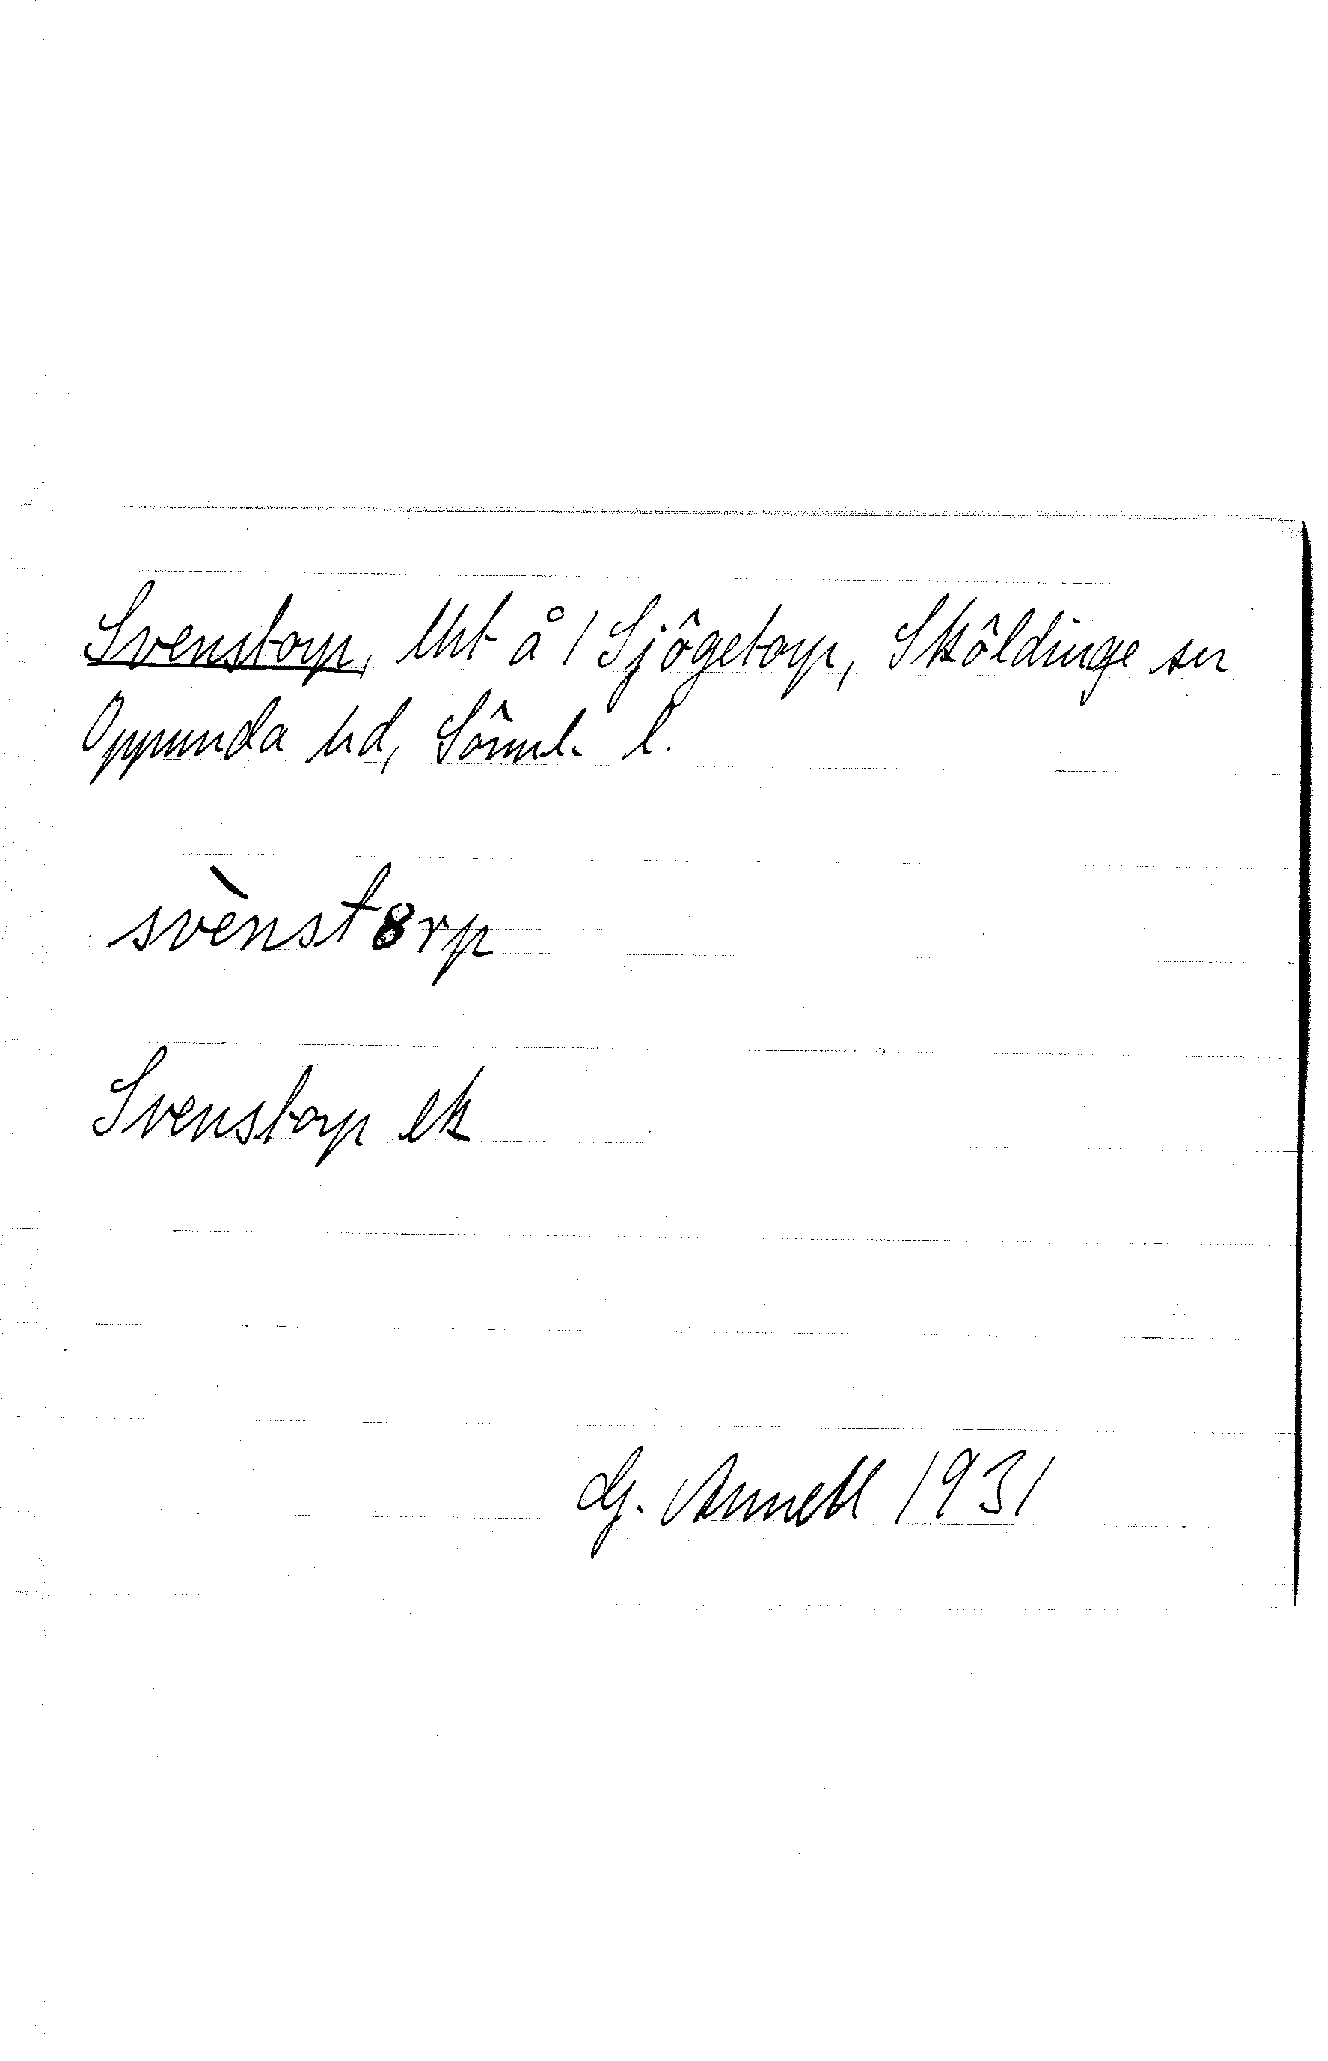 Svenstorp, lht å 1 Sjögetorp, Sköldinge sn
Oppunda hd, Söml. l.
svènst8rp
Svenstorp ek
G. Annell 1931